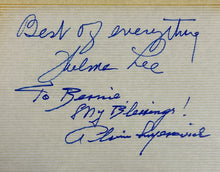 Best of everything
Thelma Lee
To Bernie
My Blessings!